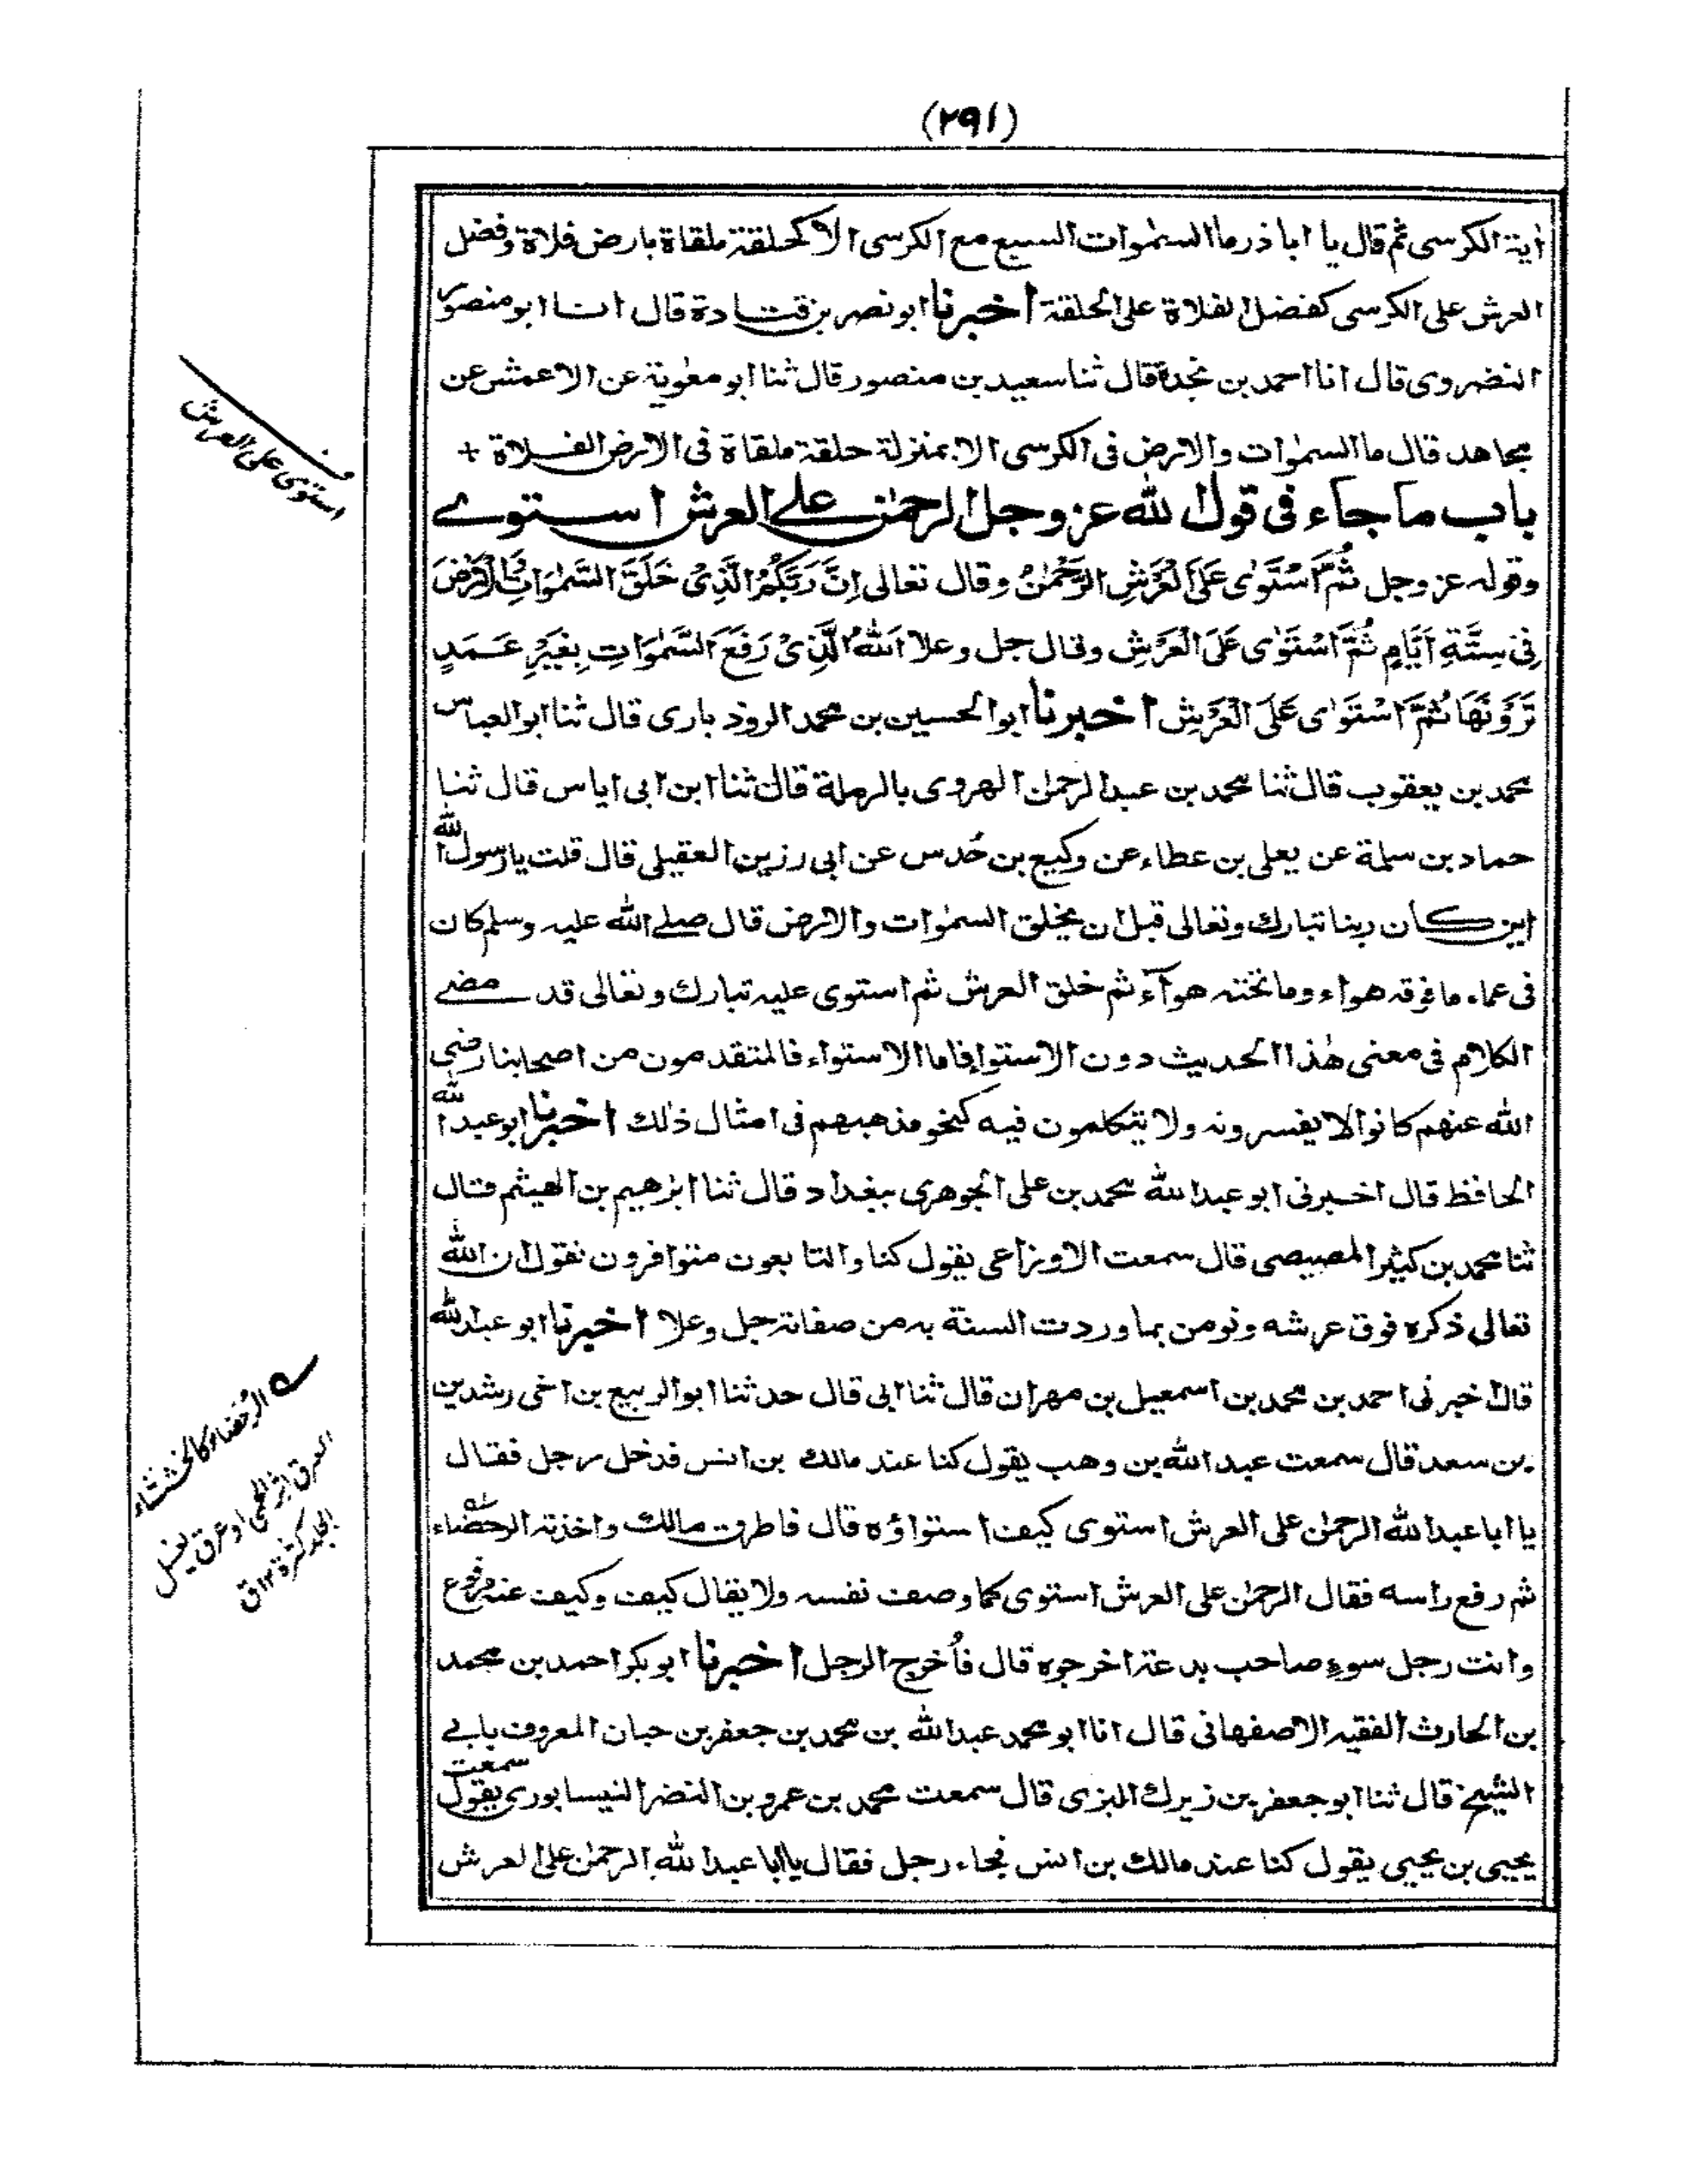 (٢٩١)
اٰية الكرسى ثم قال يا ابا ذر ما السمٰوات السبع مع الكرسى الا كحلقة ملقاة بارض فلاة وفضل
العرش على الكرسى كفضل الفلاة على الحلقة اخبرنا ابو نصر بن قتادة قال انا ابو منصور
النضروى قال انا احمد بن نجدة قال ثنا سعيد بن منصور قال ثنا ابو معٰوية عن الاعمش عن
مجاهد قال ما السمٰوات والارض فى الكرسى الا بمنزلة حلقة ملقاة فى الارض الفلاة +
باب ما جاء فى قول الله عز وجل الرحمٰن على العرش استوى
وقوله عز وجل ثُمَّ اسْتَوٰى عَلَى الْعَرْشِ الرَّحْمٰنُ وقال تعالى اِنَّ رَبَّكُمُ الَّذِىْ خَلَقَ السَّمٰوَاتِ وَالْاَرْضَ
فِىْ سِتَّةِ اَيَّامٍ ثُمَّ اسْتَوٰى عَلَى الْعَرْشِ وقال جل وعلا اَللّٰهُ الَّذِىْ رَفَعَ السَّمٰوَاتِ بِغَيْرِ عَمَدٍ
تَرَوْنَهَا ثُمَّ اسْتَوٰى عَلَى الْعَرْشِ اخبرنا ابو الحسين بن محمد الروذبارى قال ثنا ابو العباس
محمد بن يعقوب قال ثنا محمد بن عبد الرحمٰن الهروى بالرملة قال ثنا ابن ابى اياس قال ثنا
حماد بن سلمة عن يعلى بن عطاء عن وكيع بن حُدس عن ابى رزين العقيلى قال قلت يا رسول الله
اين كان ربنا تبارك وتعالى قبل ان يخلق السمٰوات والارض قال صلى الله عليه وسلم كان
فى عماء ما فوقه هواء وما تحته هوآء ثم خلق العرش ثم استوى عليه تبارك وتعالى قد مضى
الكلام فى معنى هٰذا الحديث دون الاستواء فاما الاستواء فالمتقدمون من اصحابنا رضى
الله عنهم كانوا لا يفسرونه ولا يتكلمون فيه كنحو مذهبهم فى امثال ذٰلك اخبرنا ابو عبد الله
الحافظ قال اخبرنى ابو عبد الله محمد بن على الجوهرى ببغداد قال ثنا ابرٰهيم بن الهيثم قال
ثنا محمد بن كثير المصيصى قال سمعت الاوزاعى يقول كنا والتابعون متوافرون نقول ان الله
تعالى ذكره فوق عرشه ونومن بما وردت السنة به من صفاته جل وعلا اخبرنا ابو عبد الله
قال اخبرنى احمد بن محمد بن اسمعيل بن مهران قال ثنا ابى قال حدثنا ابو الربيع بن اخى رشدين
بن سعد قال سمعت عبد الله بن وهب يقول كنا عند مالك بن انس فدخل رجل فقال
يا ابا عبد الله الرحمٰن على العرش استوى كيف استواؤه قال فاطرق مالك واخذته الرحضاء
ثم رفع راسه فقال الرحمٰن على العرش استوى كما وصف نفسه ولا يقال كيف وكيف عنه مرفوع
وانت رجل سوء صاحب بدعة اخرجوه قال فأُخرج الرجل اخبرنا ابو بكر احمد بن محمد
بن الحارث الفقيه الاصفهانى قال انا ابو محمد عبد الله بن محمد بن جعفر بن حبان المعروف بابى
الشيخ قال ثنا ابو جعفر بن زيرك البزى قال سمعت محمد بن عمرو بن النضر النيسابورى يقول سمعت
يحيى بن يحيى يقول كنا عند مالك بن انس فجاء رجل فقال يا ابا عبد الله الرحمٰن على العرش
استوى على العرش
الرُحضاء كالخششاء
العرق اثر الحمى او عرق يغسل
الجلد كثرة ١٢ ق